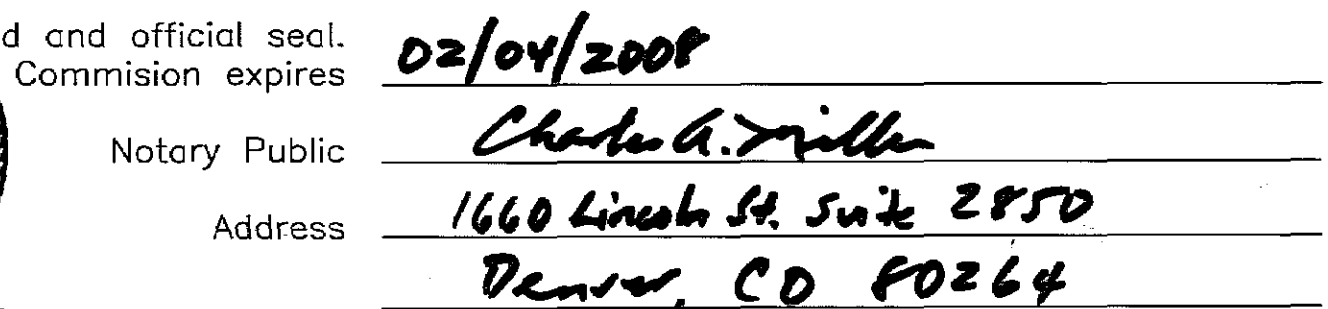 d and official seal.
Commision expires 02/04/2008
Notary Public Charles A. Miller
Address 1660 Lincoln St. Suite 2850
Denver, CO 80264